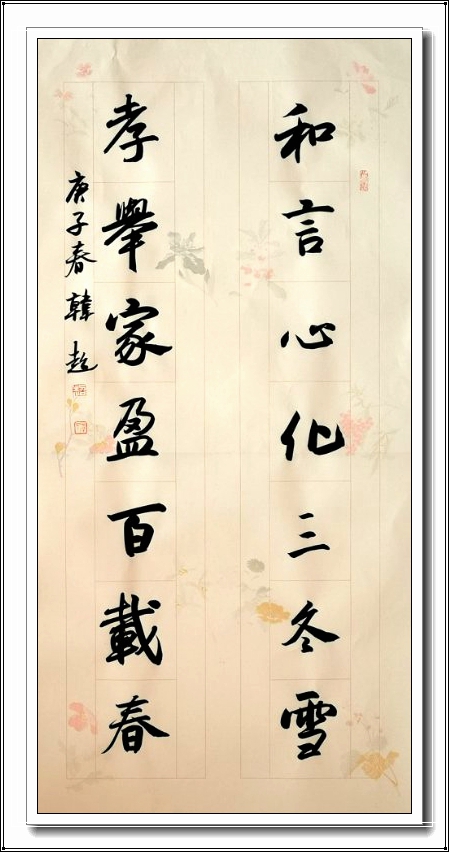 和言心化三冬雪
孝舉家盈百載春
庚子春韓起